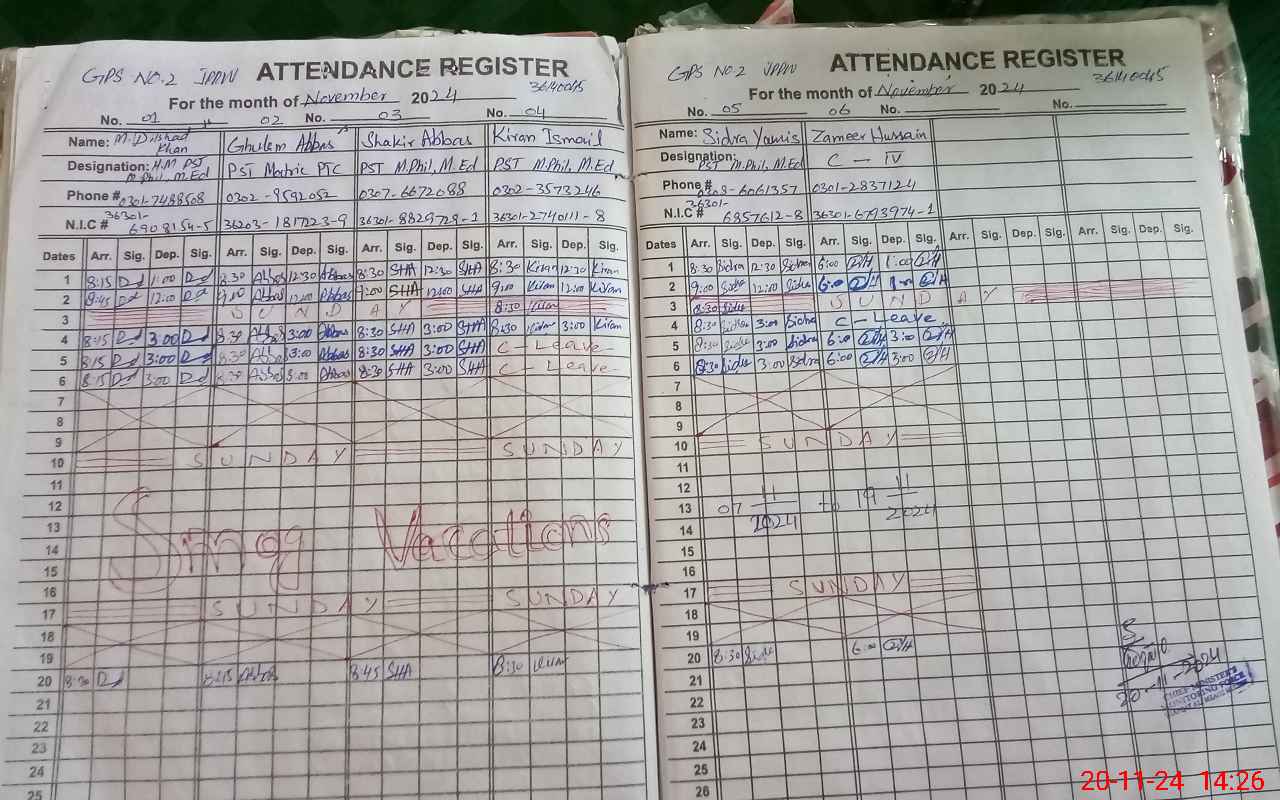 GPS NO.2 JPPW ATTENDANCE REGISTER
36140045
For the month of November 2024
No. 01 02 No. 03 04
Name: M. Dilshad Khan Ghulam Abbas Shakir Abbas Kiran Ismail
Designation: H.M PST M.Phil, M.Ed PST Matric PTC PST M.Phil, M.Ed PST M.Phil, M.Ed
Phone # 0301-7488568 0302-9592052 0307-6672088 0302-3573246
N.I.C # 36301-6908154-5 36203-1817223-9 36301-8829729-1 36301-2740111-8
Dates Arr. Sig. Dep. Sig. Arr. Sig. Dep. Sig. Arr. Sig. Dep. Sig. Arr. Sig. Dep. Sig.
1 8:15 1:00 8:30 Abbas 12:30 Abbas 8:30 SHA 12:30 SHA 8:30 Kiran 12:30 Kiran
2 8:45 12:00 9:00 Abbas 12:00 Abbas 9:00 SHA 12:00 SHA 9:00 Kiran 12:00 Kiran
3 SUNDAY 8:30 Kiran
4 8:15 3:00 8:30 Abbas 3:00 Abbas 8:30 SHA 3:00 SHA 8:30 Kiran 3:00 Kiran
5 8:15 3:00 8:30 Abbas 3:00 Abbas 8:30 SHA 3:00 SHA C-Leave-
6 8:15 3:00 8:30 Abbas 3:00 Abbas 8:30 SHA 3:00 SHA C-Leave-
7
8
9
10 SUNDAY SUNDAY
11
12
13 Smog Vacations
14
15
16
17 SUNDAY SUNDAY
18
19
20 8:30 8:45 Abbas 8:45 SHA 8:30 Kiran
21
22
23
24
25
GPS NO.2 JPPW ATTENDANCE REGISTER
36140045
For the month of November 2024
No. 05 06 No. No.
Name: Sidra Younis Zameer Hussain
Designation: PST M.Phil, M.Ed C-IV
Phone # 0308-6061357 0301-2837124
N.I.C # 36301-6857612-8 36301-6793974-1
Dates Arr. Sig. Dep. Sig. Arr. Sig. Dep. Sig. Arr. Sig. Dep. Sig. Arr. Sig. Dep. Sig.
1 8:30 Sidra 12:30 Sidra 6:00 ZH 1:00 ZH
2 9:00 Sidra 12:00 Sidra 6:00 ZH 1:00 ZH
3 8:30 Sidra SUNDAY
4 8:30 Sidra 3:00 Sidra C-Leave
5 8:30 Sidra 3:00 Sidra 6:00 ZH 3:00 ZH
6 8:30 Sidra 3:00 Sidra 6:00 ZH 3:00 ZH
7
8
9
10 SUNDAY
11
12
13 07 11/2024 to 19 11/2024
14
15
16
17 SUNDAY
18
19
20 8:30 Sidra 6:00 ZH
21
22
23
24
25
26
20-11-2024
CHIEF MINISTER'S
MONITORING FORCE
20-11-24 14:26